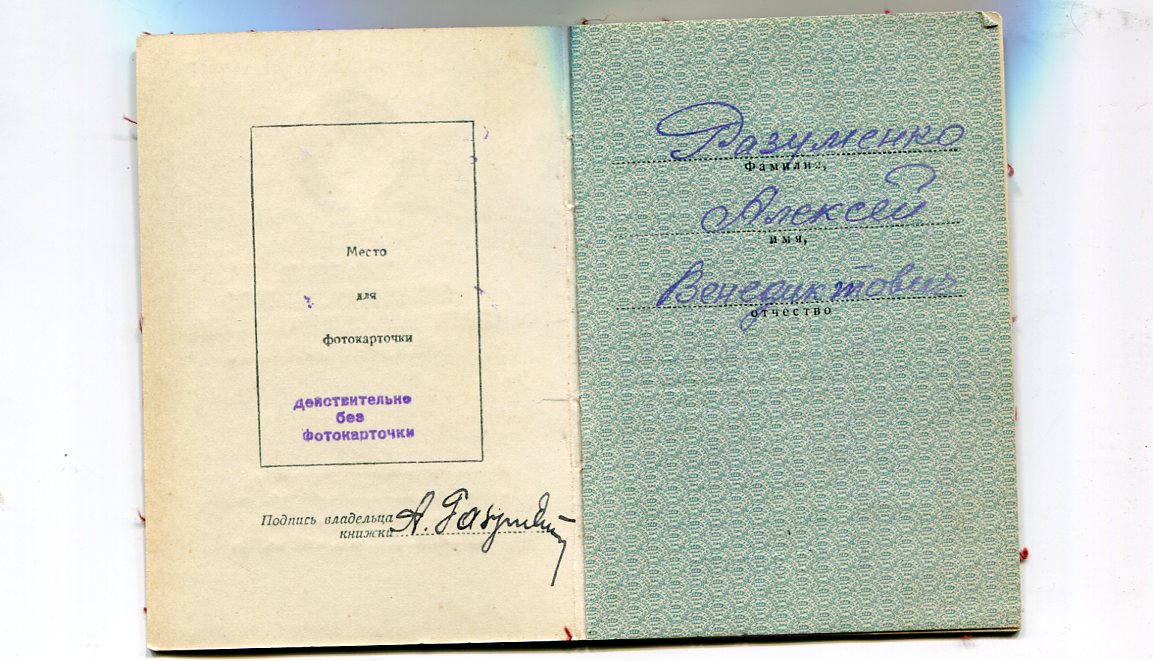 Место
для
фотокарточки
действительно
без
фотокарточки
Подпись владельца
книжки
А.
Разуменко
Фамилия,
Алексей
имя,
Венедиктович
отчество